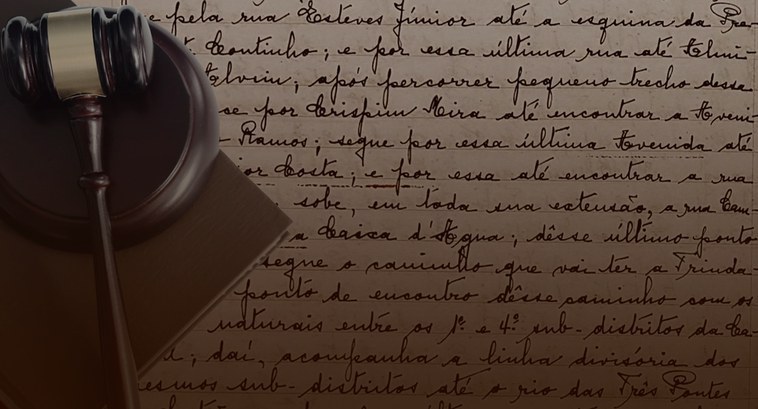 e pela rua Esteves Júnior até a esquina da Pra-
Coutinho; e por essa última rua até Almi-
Alvim; após percorrer pequeno trecho dessa
se por Crispim Mira até encontrar a Aveni-
Ramos; segue por essa última Avenida até
Costa; e por essa até encontrar a rua
sobe, em toda sua extensão, a rua Cam-
a Caixa d'Agua; dêsse último ponto
segue o caminho que vai ter a Trinda-
ponto de encontro dêsse caminho com os
naturais entre os 1º e 4º sub-distritos da Ca-
; daí, acompanha a linha divisória dos
esmos sub-distritos até o rio das Três Pontes